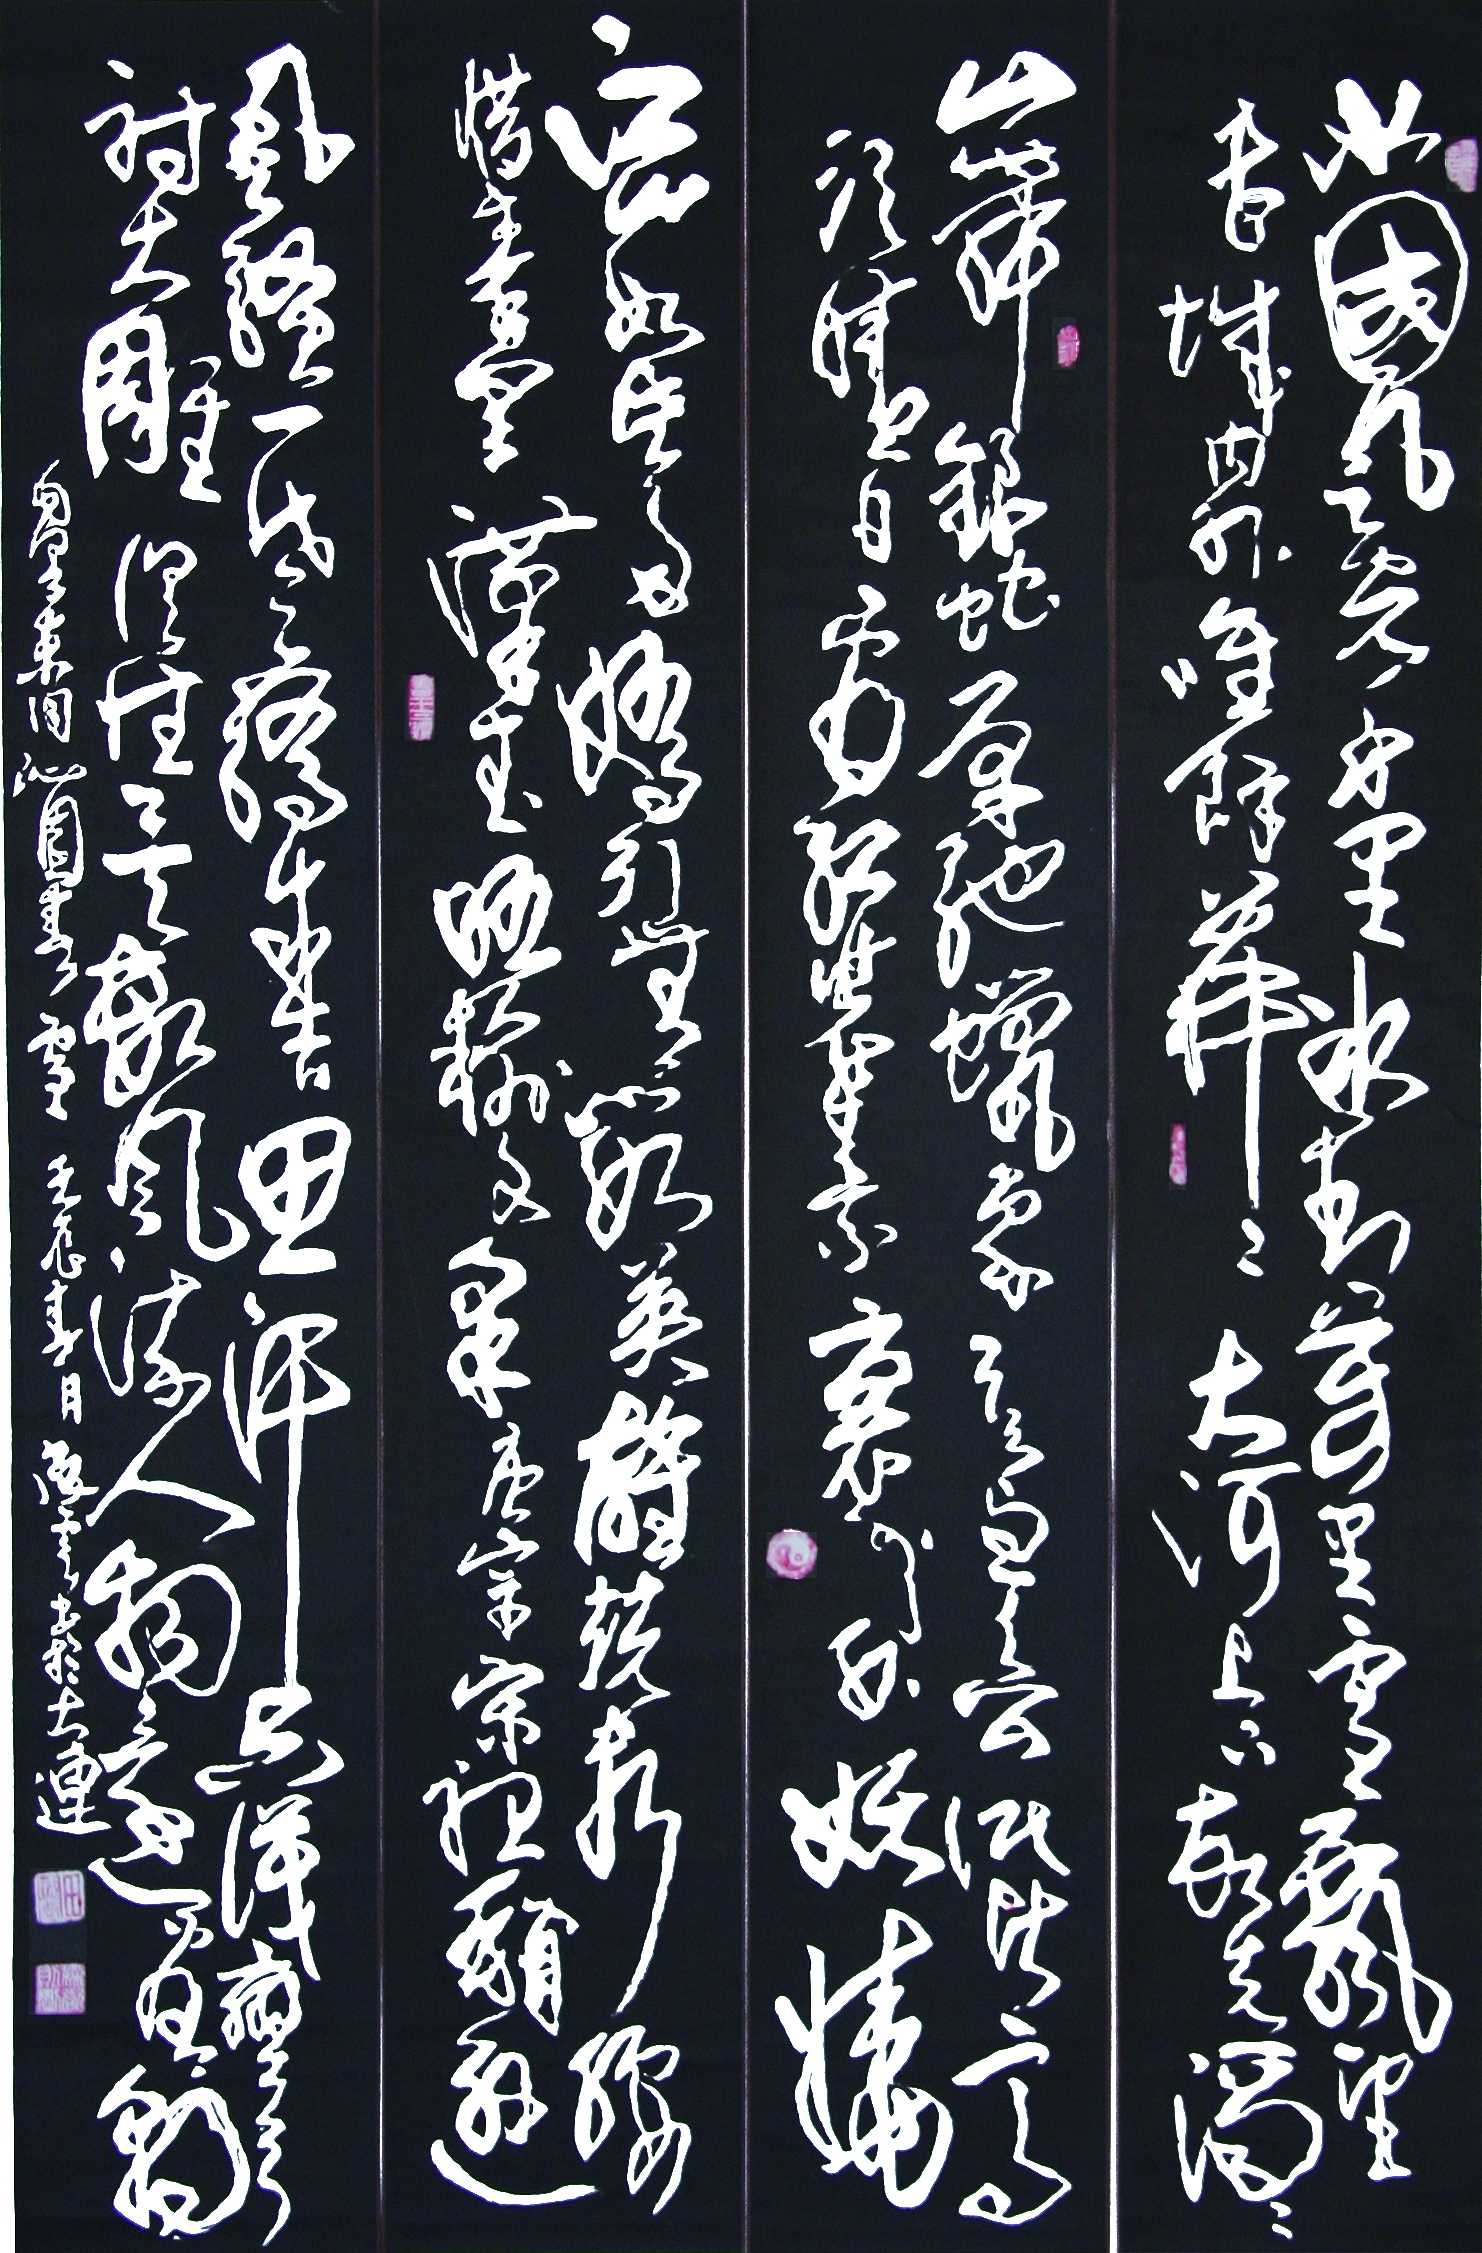 北國風光千里冰封萬里雪飄望
長城內外唯餘莽〻大河上下頓失滔〻
山舞銀蛇原馳蠟象欲與天公試比高
須晴日看紅裝素裹分外妖嬈
江山如此多嬌引無數英雄競折腰
惜秦皇漢武略輸文采唐宗宋祖稍遜
風騷一代天驕成吉思汗只識彎弓
射大雕俱往矣數風流人物還看今朝
毛澤東詞沁園春雪 壬辰春月 書於大連